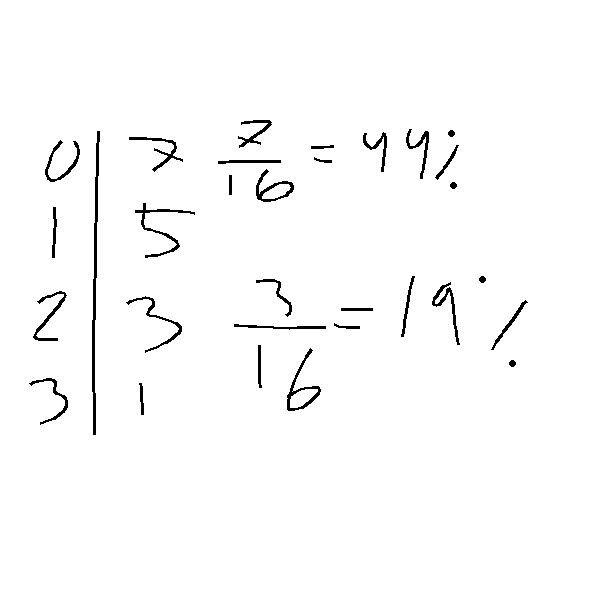 0 | 7 7/16 = 44%
1 | 5
2 | 3 3/16 = 19%
3 | 1